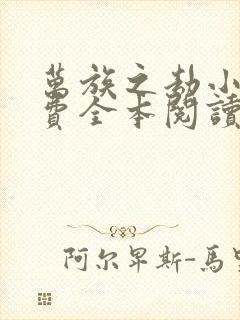 萬族之劫小
費全本閱讀
阿尔卑斯-馬